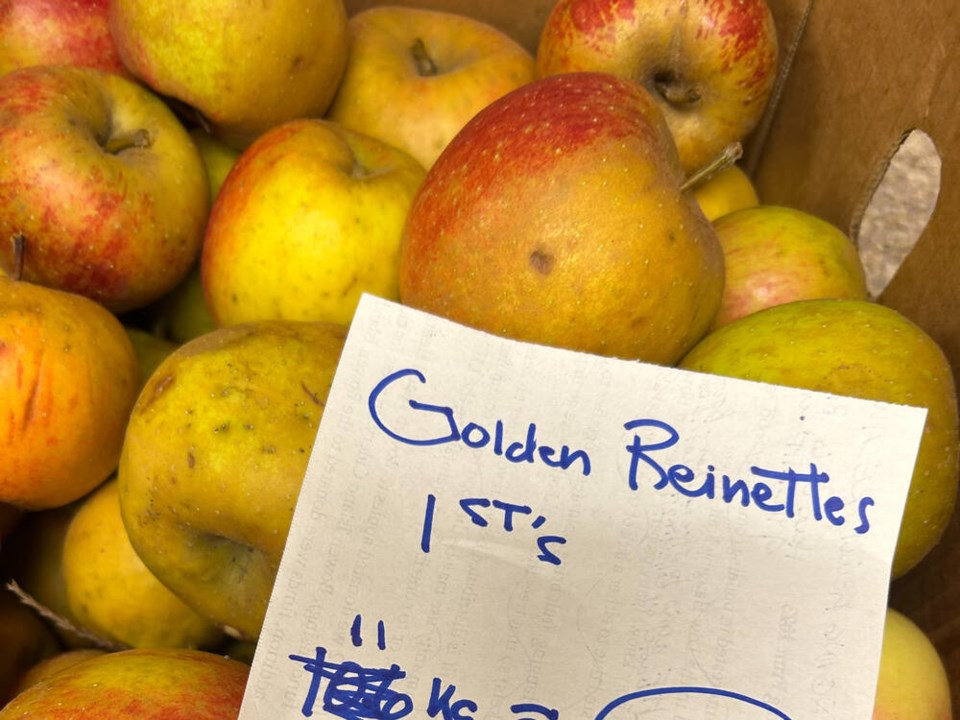 Golden Reinettes
1ST's
11
Kg =